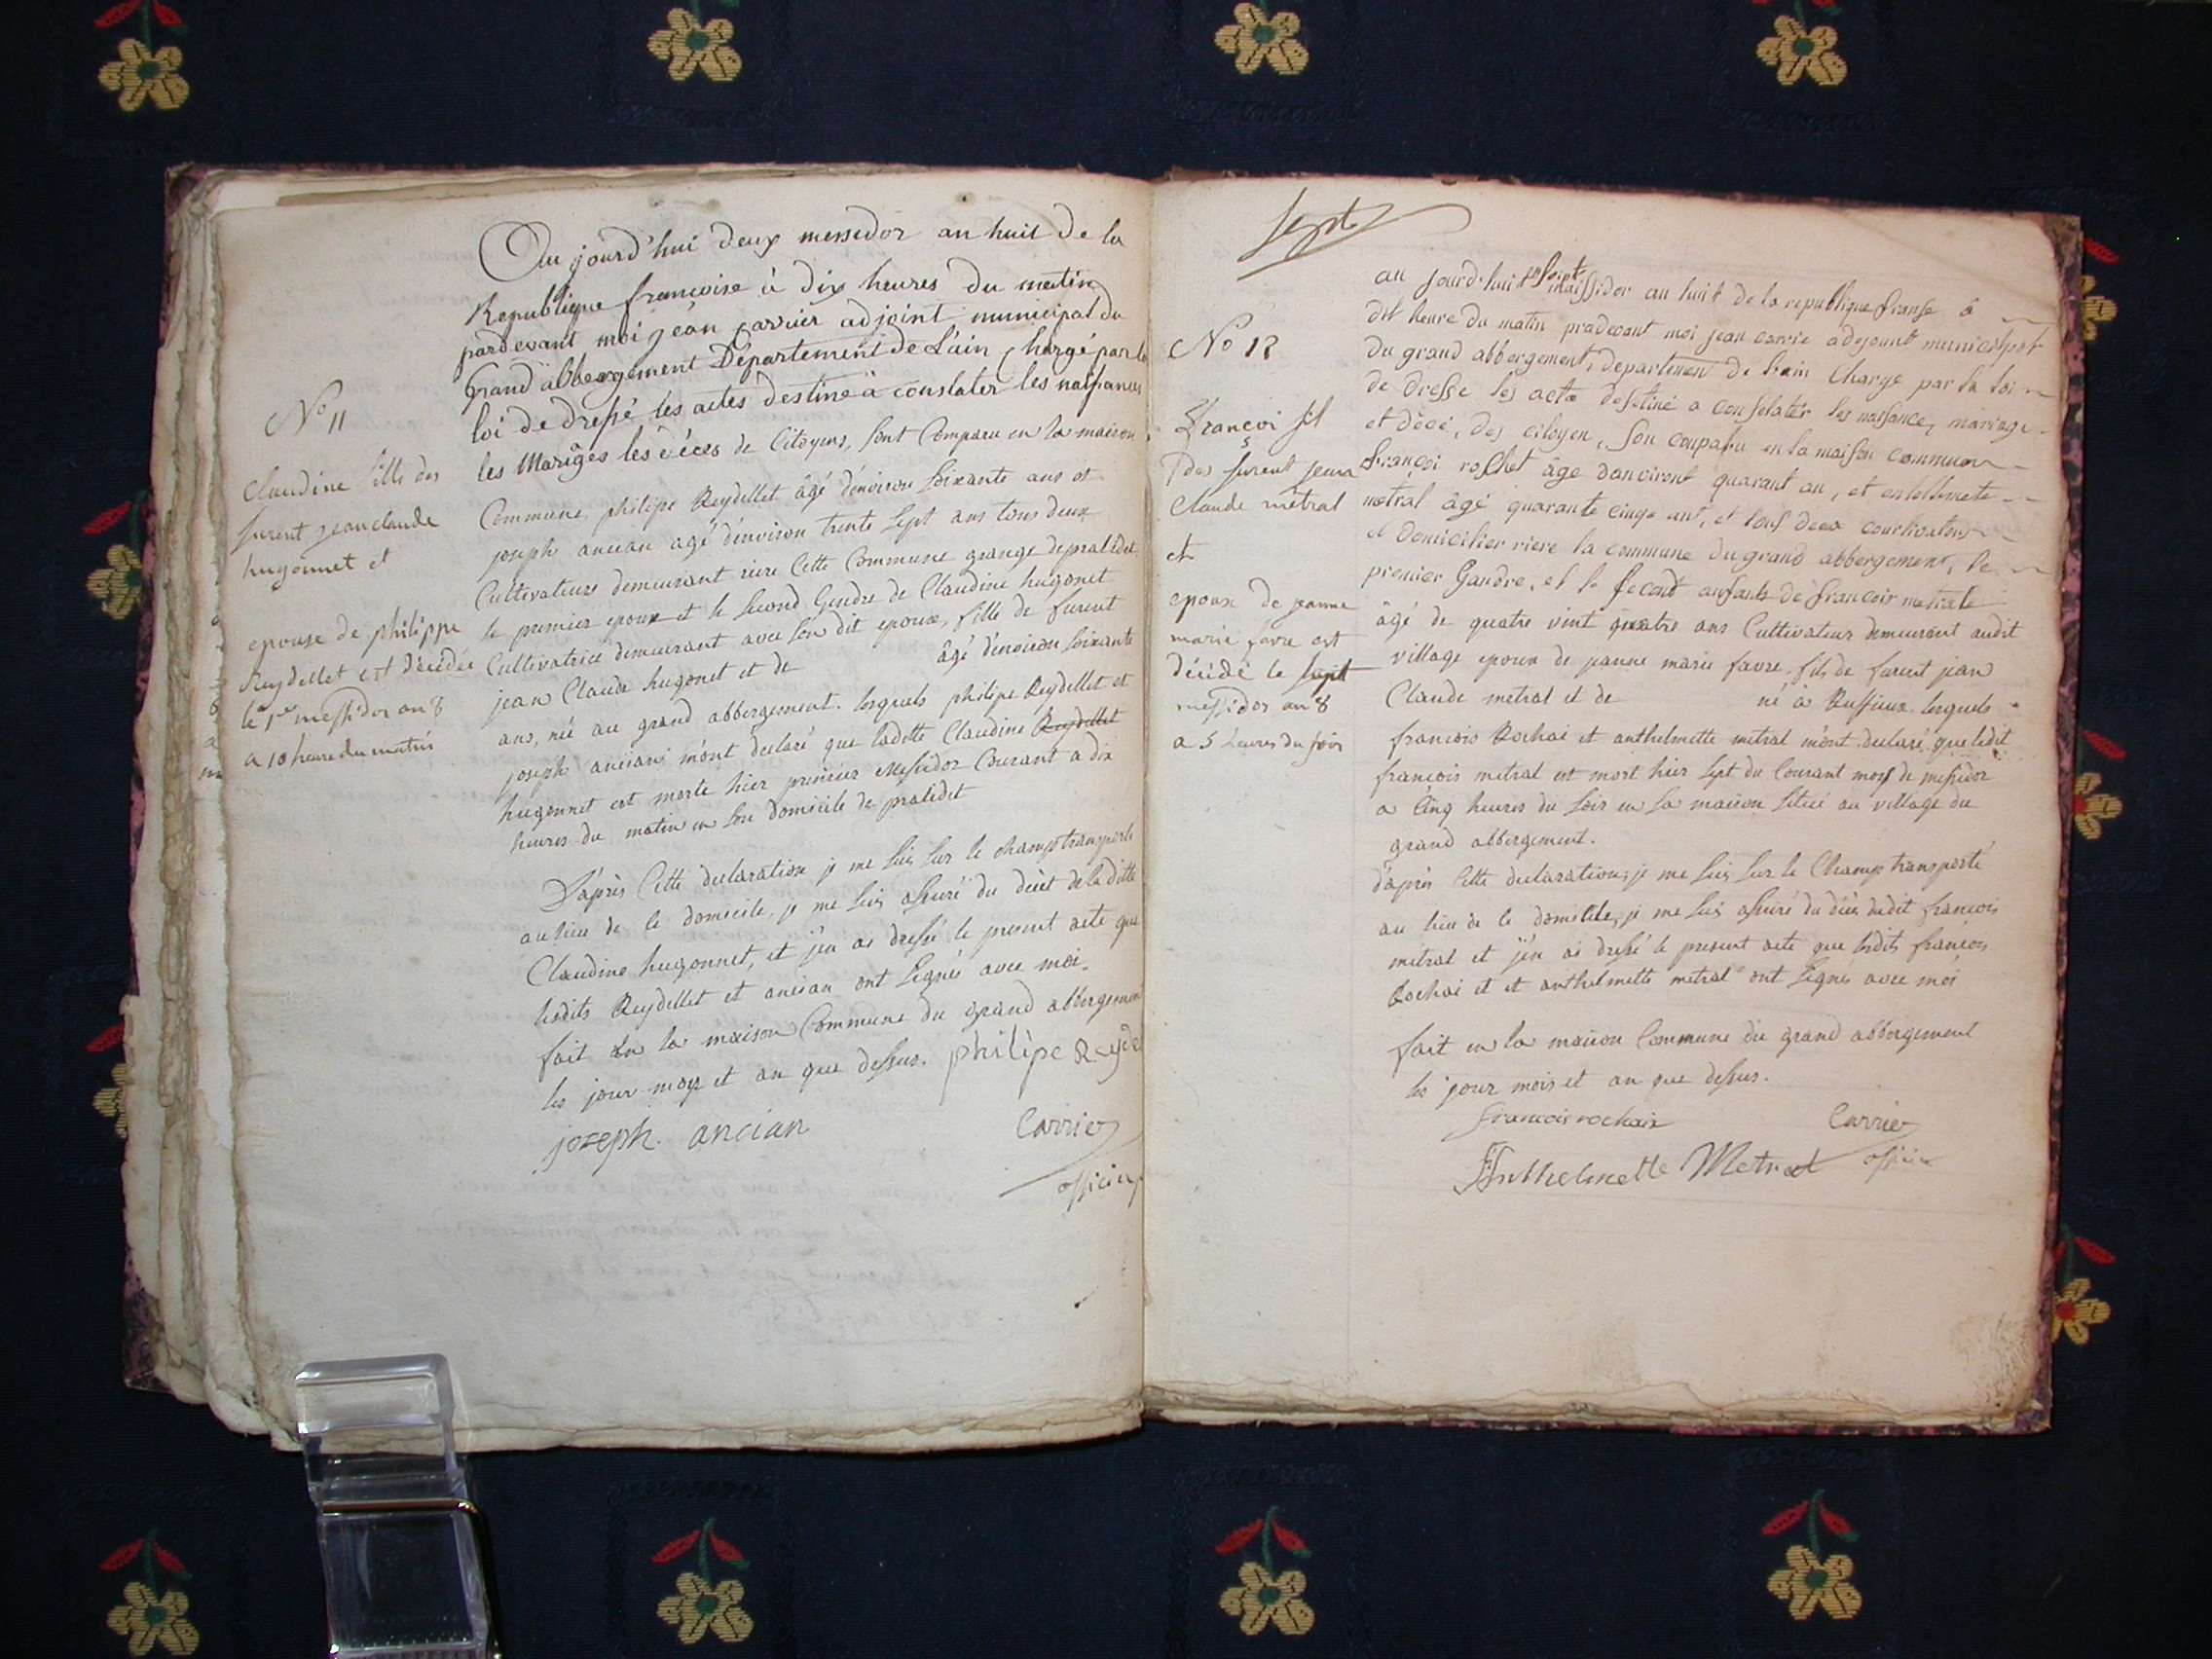 Au jourd'hui deux messidor an huit de la
Republique francoise à dix heures du matin
pardevant moi jean carrier adjoint municipal du
Grand abbergement Département de L'ain chargé par la
loi de dressé les actes destiné à constater les naissances
les Mariages les décès de Citoyens, sont Comparu en la maison
Commune, philipe Reydellet âgé d'environ soixante ans et
joseph ancian agé d'environ trente sept ans tous deux
Cultivateurs demeurant riere Cette Commune grange de pralidet
le premier epoux et le second Gendre de Claudine hugonet
Cultivatrice demeurant avec son dit epoux, fille de furent
jean Claude hugonet et de âgé d'environ soixante
ans, née au grand abbergement. lesquels philipe Reydellet et
joseph ancian m'ont declaré que ladette Claudine Reydellet
hugonnet est morte hier premier Messidor Courant a dix
heures du matin en son domicile de pralidet
D'après Cette declaration je me suis sur le champ transporté
au lieu de le domicile, je me suis assuré du décèt de la ditte
Claudine hugonnet, et j'en ai dressé le present acte que
lesdits Reydellet et ancian ont signés avec moi.
fait en la maison Commune du grand abbergement
les jour mois et an que dessus. philipe Reyde
joseph. ancian Carrier
officier
No 11
Claudine fille des
furent jean claude
hugonnet et
epouse de philippe
Reydellet est décédée
le 1er messidor an 8
a 10 heure du matin
sept
No 12
Francoi fil
des furent jean
Claude métral
et
epoux de jeanne
marie favre est
décédé le sept
messidor an 8
a 5 heures du soir
au jourd'huit messidor an huit de la republique franse à
dit heure du matin pradevant moi jean carrie adejount municipat
du grand abbergement, departement de L'ain Charge par la loi
de dresse les acte destiné a constater les naissance, mariage
et décé, des citoyen, son couparu en la maison commun
francoi rochet âge danviront quarant an, et entelmete
metral âgé quarante cinqe ant, et tous deux courtivateur
et domicilier riere la commune du grand abbergement, le
premier Gandre, et le second anfants de francois metrale
âgé de quatre vint quatre ans Cultivateur demeurant audit
village epoux de jeanne marie favre, fils de furent jean
Claude metral et de né à Ruffieux lesquels
francois Rochai et anthelmette metral m'ont declaré que ledit
francois metral est mort hier sept du Courant mois de messidor
a Cinq heures du soir en sa maison située au village du
grand abbergement.
d'après Cette declaration, je me suis sur le Champ transporté
au lieu de le domicile, je me suis assuré du décès dudit francois
metral et j'en ai dressé le present acte que lesdits francois
Rochai et et anthelmette metral ont signés avec moi
fait en la maison Commune du grand abbergement
les jour mois et an que dessus.
francois rochaix Carrier
Anthelmette Metral officier